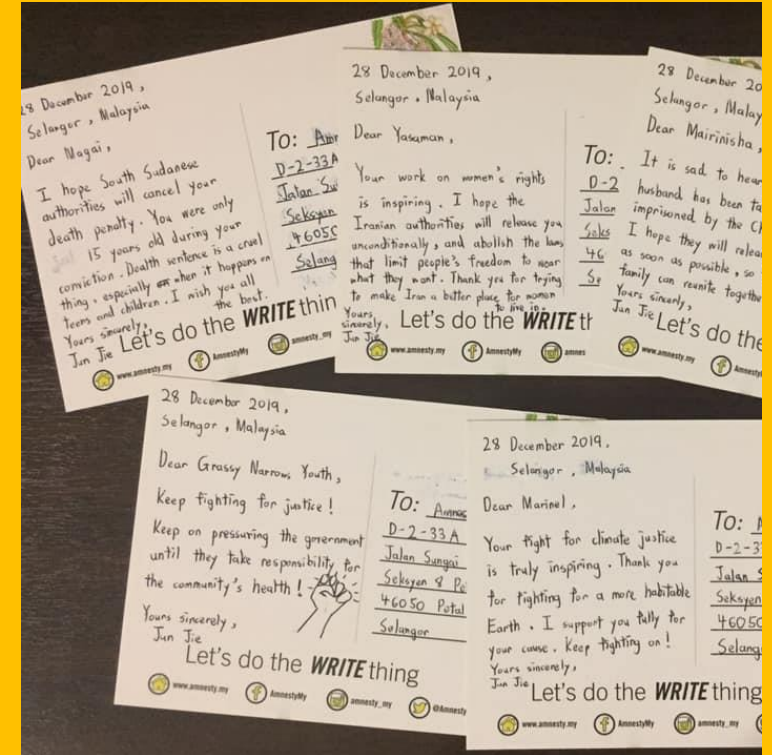 28 December 2019,
Selangor, Malaysia
Dear Magai,
I hope South Sudanese
authorities will cancel your
death penalty. You were only
15 years old during your
conviction. Death sentence is a cruel
thing, especially when it happens on
teens and children. I wish you all
the best.
Yours sincerely,
Jun Jie
To:
D-2-33A
Jalan
Seksyen
4605
Selang
Let's do the WRITE thin
www.amnesty.my
AmnestyMy
amnesty_my
28 December 2019,
Selangor, Malaysia
Dear Yasaman,
Your work on women's rights
is inspiring. I hope the
Iranian authorities will release you
unconditionally, and abolish the laws
that limit people's freedom to wear
what they want. Thank you for trying
to make Iran a better place for women
to live in.
Yours
sincerely,
Jun Jie
To:
D-2
Jalan
Seks
46
Se
Let's do the WRITE th
www.amnesty.my
AmnestyMy
amnes
28 December 20
Selangor, Malay
Dear Mairinisha,
It is sad to hear
husband has been ta
imprisoned by the Ch
I hope they will relea
as soon as possible, so
family can reunite togethe
Yours sincerly,
Jun Jie
Let's do the
www.amnesty.my
Amnesty
28 December 2019,
Selangor, Malaysia
Dear Grassy Narrows Youth,
Keep fighting for justice!
Keep on pressuring the government
until they take responsibility for
the community's health!
Yours sincerely,
Jun Jie
To: Amnes
D-2-33A
Jalan Sungai
Seksyen 8 Pe
46050 Petal
Selangor
Let's do the WRITE thing
www.amnesty.my
AmnestyMy
amnesty_my
@Amnesty
28 December 2019,
Selangor, Malaysia
Dear Marinel,
Your fight for climate justice
is truly inspiring. Thank you
for fighting for a more habitable
Earth. I support you fully for
your cause. Keep fighting on!
Yours sincerely,
Jun Jie
To:
D-2-3
Jalan S
Seksyen
46050
Selang
Let's do the WRITE thing
www.amnesty.my
AmnestyMy
amnesty_my